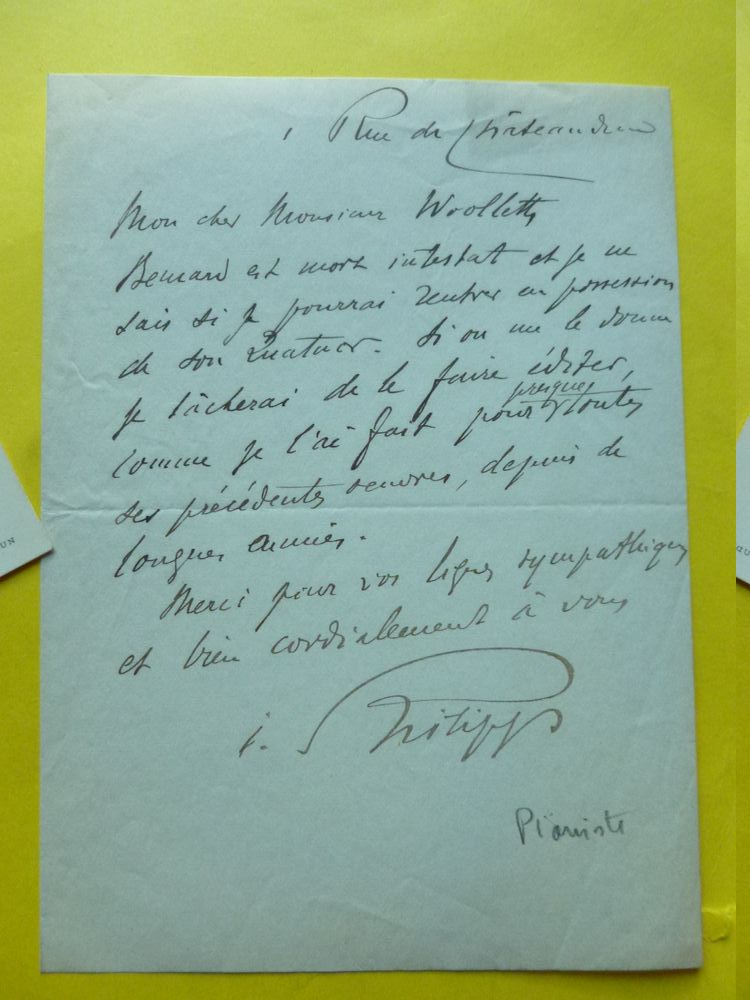 1 Rue de Châteaudun
Mon cher Monsieur Woollett,
Bernard est mort intestat et je ne
sais si je pourrai rentrer en possession
de son Quatuor. Si on me le donne
je tâcherai de le faire éditer,
presque
comme je l'ai fait pour toutes
ses précédentes oeuvres, depuis de
longues années.
Merci pour vos lignes sympathiques
et bien cordialement à vous
i. Philipp
Pianiste
UN